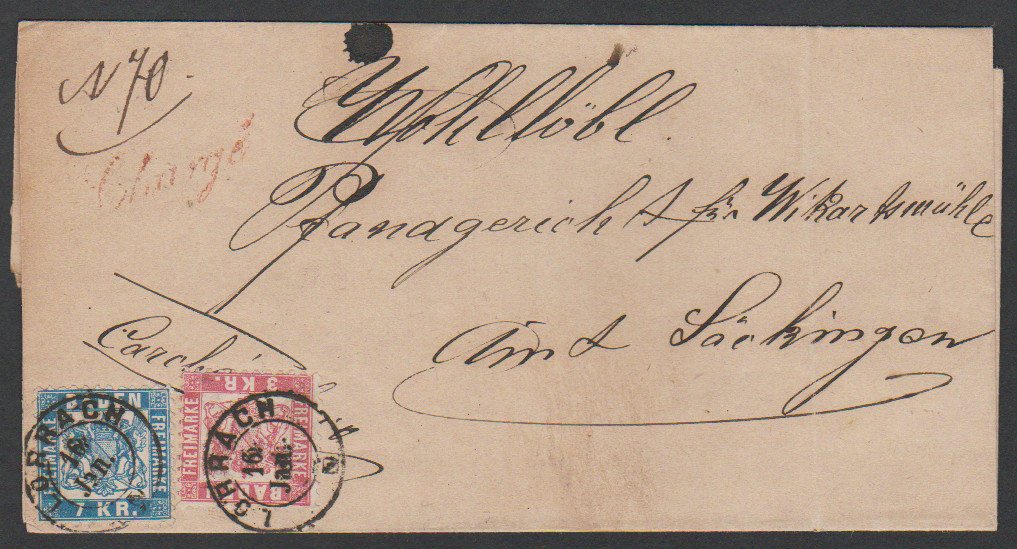 N 70.
Chargé
Wohllöbl.
Pfandgericht für Wikartsmühle
Amt Säckingen
BADEN
FREIMARKE
FREIMARKE
7 KR.
3 KR.
FREIMARKE
FREIMARKE
BADEN
LÖRRACH
16
Jan.
LÖRRACH
16
Jan.
N